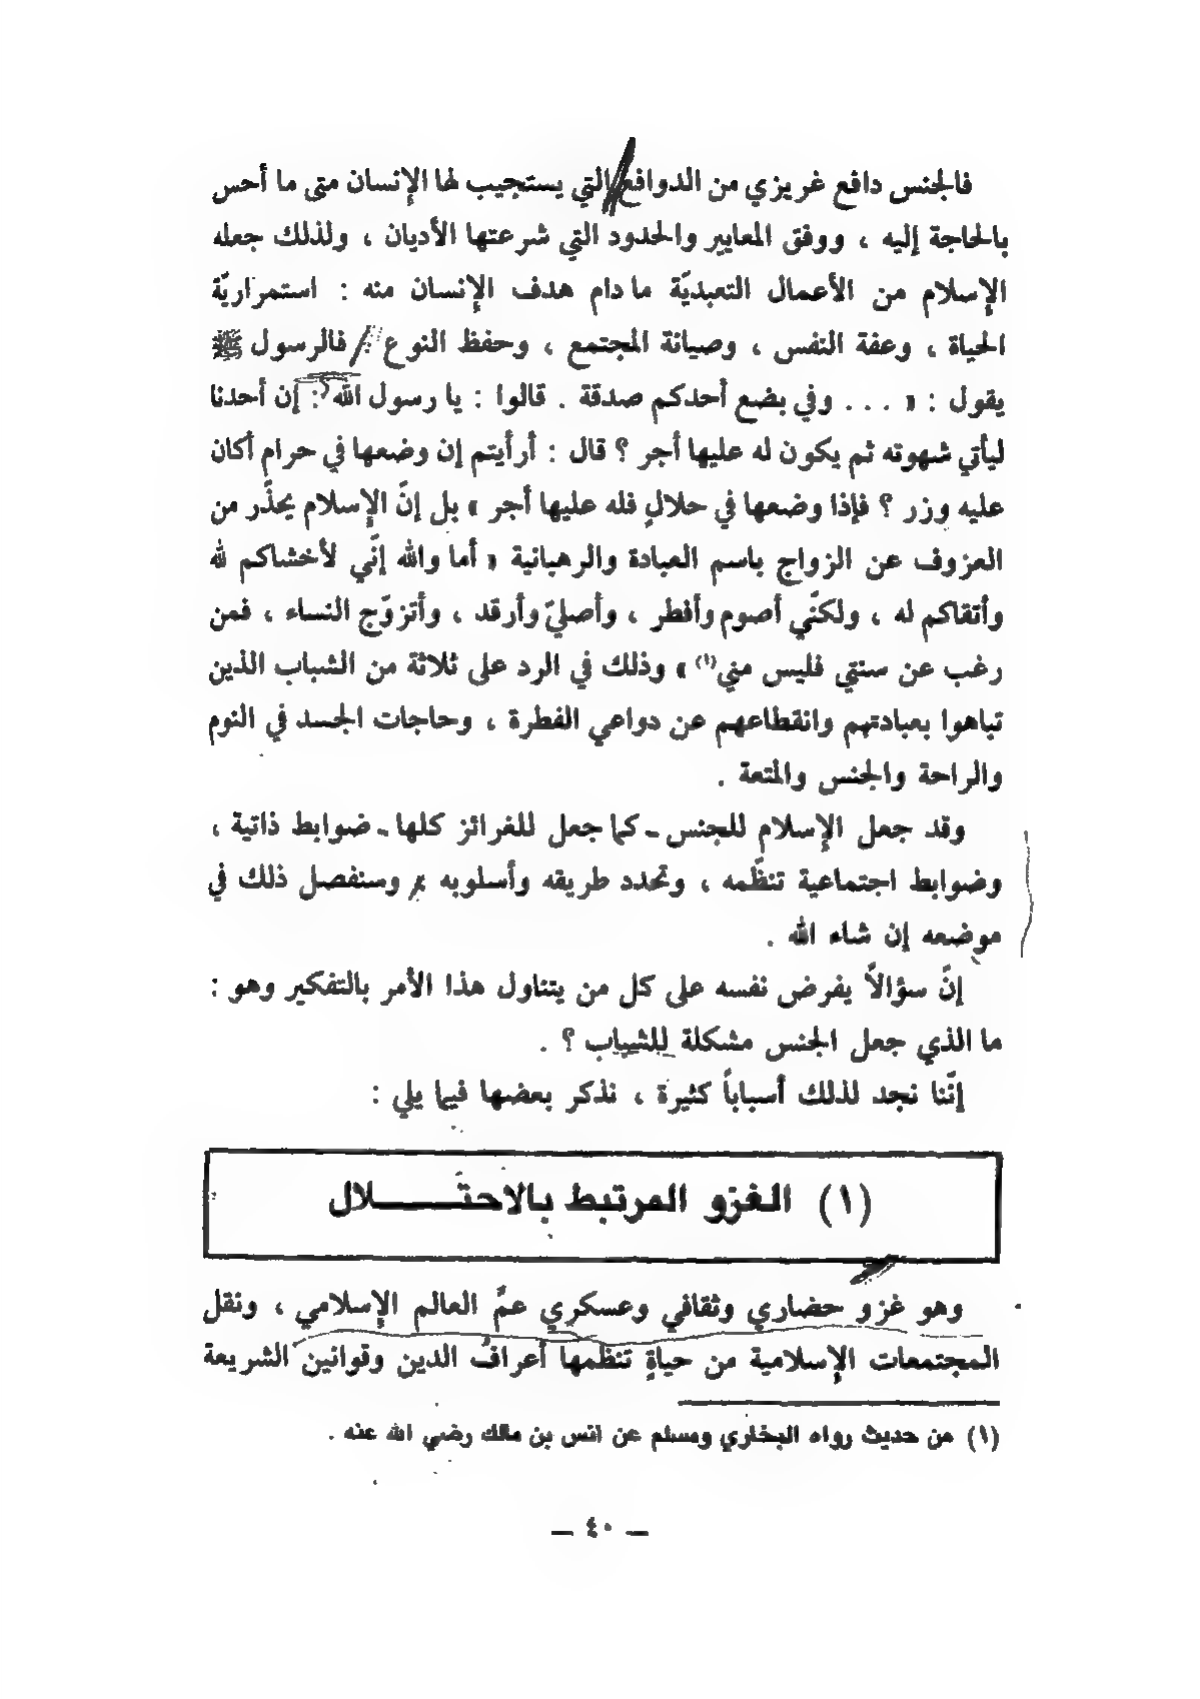 فالجنس دافع غريزي من الدوافع التي يستجيب لها الإنسان متى ما أحس
بالحاجة إليه ، ووفق المعايير والحدود التي شرعتها الأديان ، ولذلك جعله
الإسلام من الأعمال التعبديّة ما دام هدف الإنسان منه : استمراريّة
الحياة ، وعفة النفس ، وصيانة المجتمع ، وحفظ النوع . فالرسول ﷺ
يقول : « . . . وفي بضع أحدكم صدقة . قالوا : يا رسول الله : إن أحدنا
ليأتي شهوته ثم يكون له عليها أجر ؟ قال : أرأيتم إن وضعها في حرام أكان
عليه وزر ؟ فإذا وضعها في حلالٍ فله عليها أجر » بل إنّ الإسلام يحذّر من
العزوف عن الزواج باسم العبادة والرهبانية « أما والله إنّي لأخشاكم لله
وأتقاكم له ، ولكنّي أصوم وأفطر ، وأصليّ وأرقد ، وأتزوّج النساء ، فمن
رغب عن سنتي فليس مني(١) » وذلك في الرد على ثلاثة من الشباب الذين
تباهوا بعبادتهم وانقطاعهم عن دواعي الفطرة ، وحاجات الجسد في النوم
والراحة والجنس والمتعة .
وقد جعل الإسلام للجنس ـ كما جعل للغرائز كلها ـ ضوابط ذاتية ،
وضوابط اجتماعية تنظّمه ، وتحدد طريقه وأسلوبه ، وسنفصل ذلك في
موضعه إن شاء الله .
إنّ سؤالاً يفرض نفسه على كل من يتناول هذا الأمر بالتفكير وهو :
ما الذي جعل الجنس مشكلة للشباب ؟ .
إنّنا نجد لذلك أسباباً كثيرة ، نذكر بعضها فيما يلي :
(١) الغزو المرتبط بالاحتـــــلال
وهو غزو حضاري وثقافي وعسكري عمّ العالم الإسلامي ، ونقل
المجتمعات الإسلامية من حياةٍ تنظمها أعرافُ الدين وقوانين الشريعة
(١) من حديث رواه البخاري ومسلم عن انس بن مالك رضي الله عنه .
— ٤٠ —